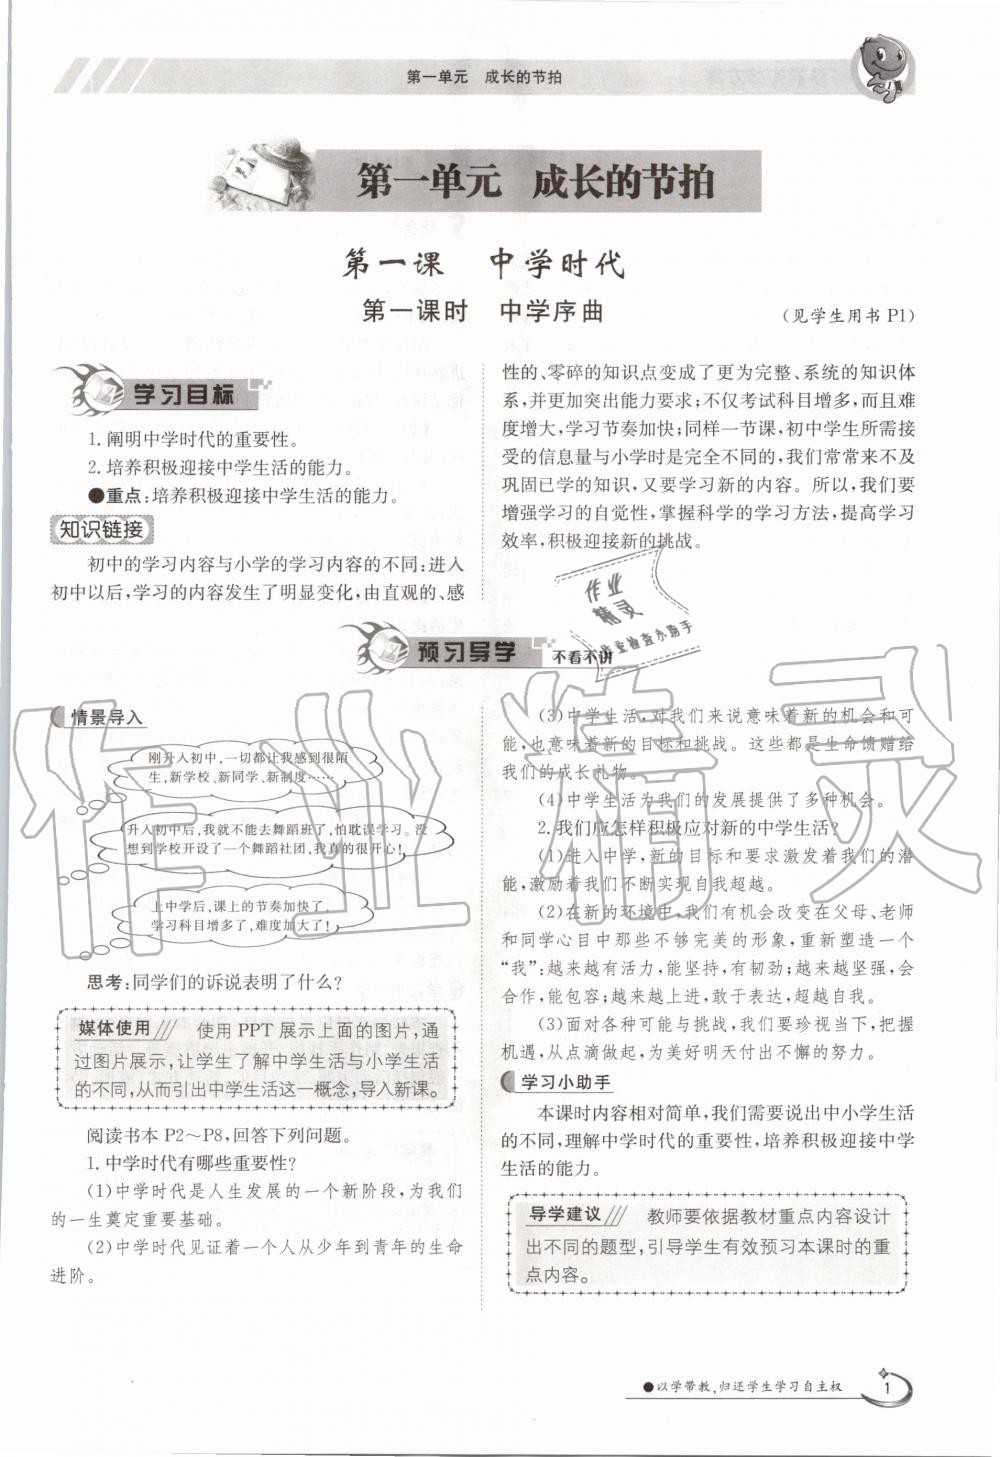 第一单元　成长的节拍
第一单元　成长的节拍
第一课　中学时代
第一课时　中学序曲
(见学生用书 P1)
学习目标
1. 阐明中学时代的重要性。
2. 培养积极迎接中学生活的能力。
●重点:培养积极迎接中学生活的能力。
知识链接
初中的学习内容与小学的学习内容的不同:进入
初中以后,学习的内容发生了明显变化,由直观的、感
性的、零碎的知识点变成了更为完整、系统的知识体
系,并更加突出能力要求;不仅考试科目增多,而且难
度增大,学习节奏加快;同样一节课,初中学生所需接
受的信息量与小学时是完全不同的,我们常常来不及
巩固已学的知识,又要学习新的内容。所以,我们要
增强学习的自觉性,掌握科学的学习方法,提高学习
效率,积极迎接新的挑战。
作业
精灵
作业检查小助手
预习导学
不看不讲
情景导入
刚升入初中,一切都让我感到很陌
生,新学校、新同学、新制度……
升入初中后,我就不能去舞蹈班了,怕耽误学习。没
想到学校开设了一个舞蹈社团,我真的很开心!
上中学后,课上的节奏加快了,
学习科目增多了,难度加大了!
思考:同学们的诉说表明了什么?
媒体使用 使用 PPT 展示上面的图片,通
过图片展示,让学生了解中学生活与小学生活
的不同,从而引出中学生活这一概念,导入新课。
阅读书本 P2～P8,回答下列问题。
1. 中学时代有哪些重要性?
(1)中学时代是人生发展的一个新阶段,为我们
的一生奠定重要基础。
(2)中学时代见证着一个人从少年到青年的生命
进阶。
(3)中学生活,对我们来说意味着新的机会和可
能,也意味着新的目标和挑战。这些都是生命馈赠给
我们的成长礼物。
(4)中学生活为我们的发展提供了多种机会。
2. 我们应怎样积极应对新的中学生活?
(1)进入中学,新的目标和要求激发着我们的潜
能,激励着我们不断实现自我超越。
(2)在新的环境中,我们有机会改变在父母、老师
和同学心目中那些不够完美的形象,重新塑造一个
“我”:越来越有活力,能坚持,有韧劲;越来越坚强,会
合作,能包容;越来越上进,敢于表达,超越自我。
(3)面对各种可能与挑战,我们要珍视当下,把握
机遇,从点滴做起,为美好明天付出不懈的努力。
学习小助手
本课时内容相对简单,我们需要说出中小学生活
的不同,理解中学时代的重要性,培养积极迎接中学
生活的能力。
导学建议 教师要依据教材重点内容设计
出不同的题型,引导学生有效预习本课时的重
点内容。
作业精灵
●以学带教,归还学生学习自主权
1